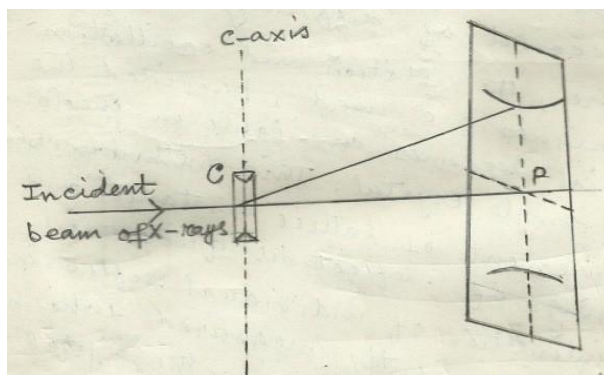 c-axis
C
Incident
beam of X-rays
P